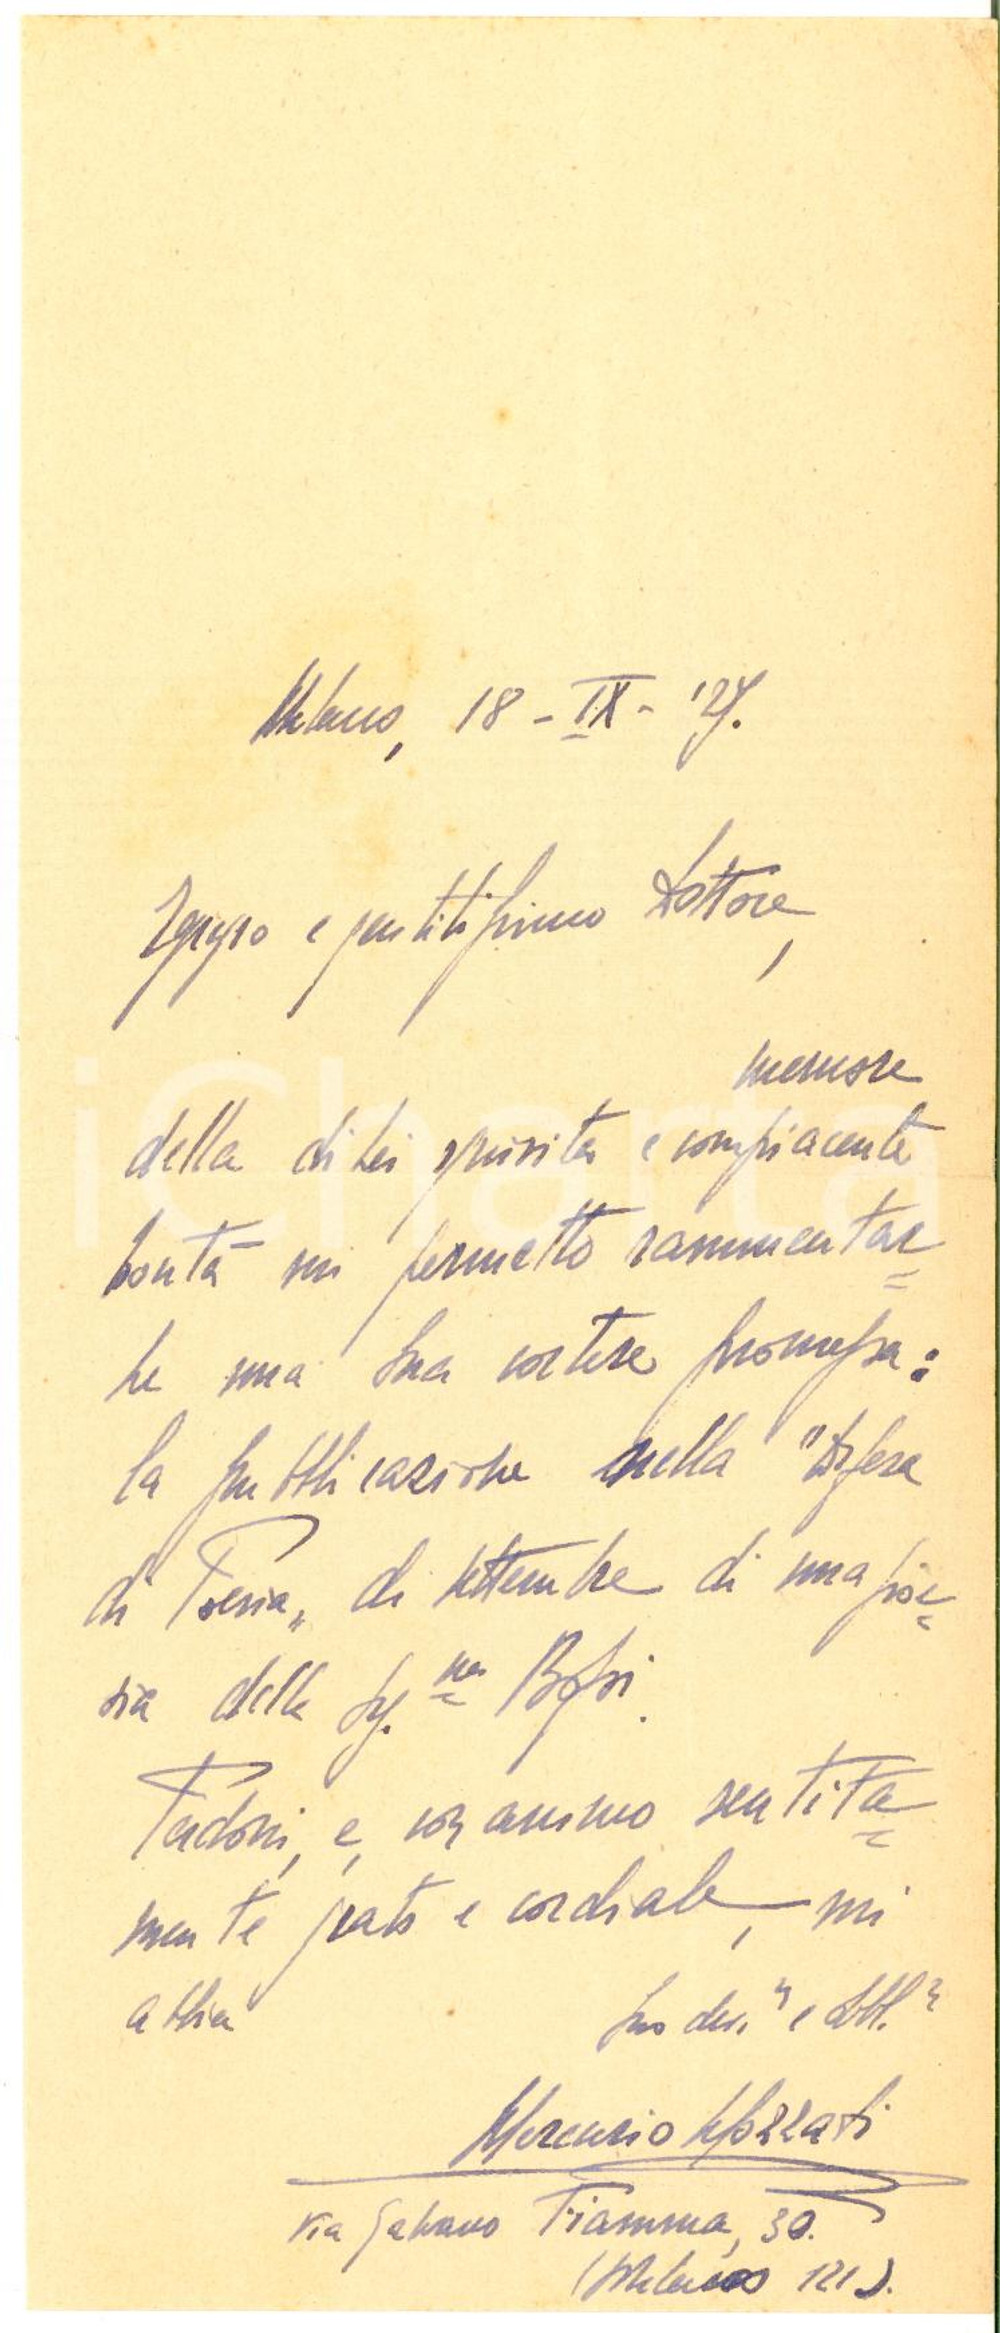 Milano, 18-IX-'27.
Egregio e gentilissimo Dottore,
memore
della di Lei squisita e compiacente
bontà mi permetto rammentar=
Le una Sua cortese promessa:
la pubblicazione nella "Difesa
di Poesia„ di settembre di una poe=
sia della Sig.na Bossi.
Perdoni, e, con animo sentita=
mente grato e cordiale, mi
abbia
Suo dev. e obbl.
Mercurio Mozzati
Via Galvano Fiamma, 30.
(Milano 121).
iCharta